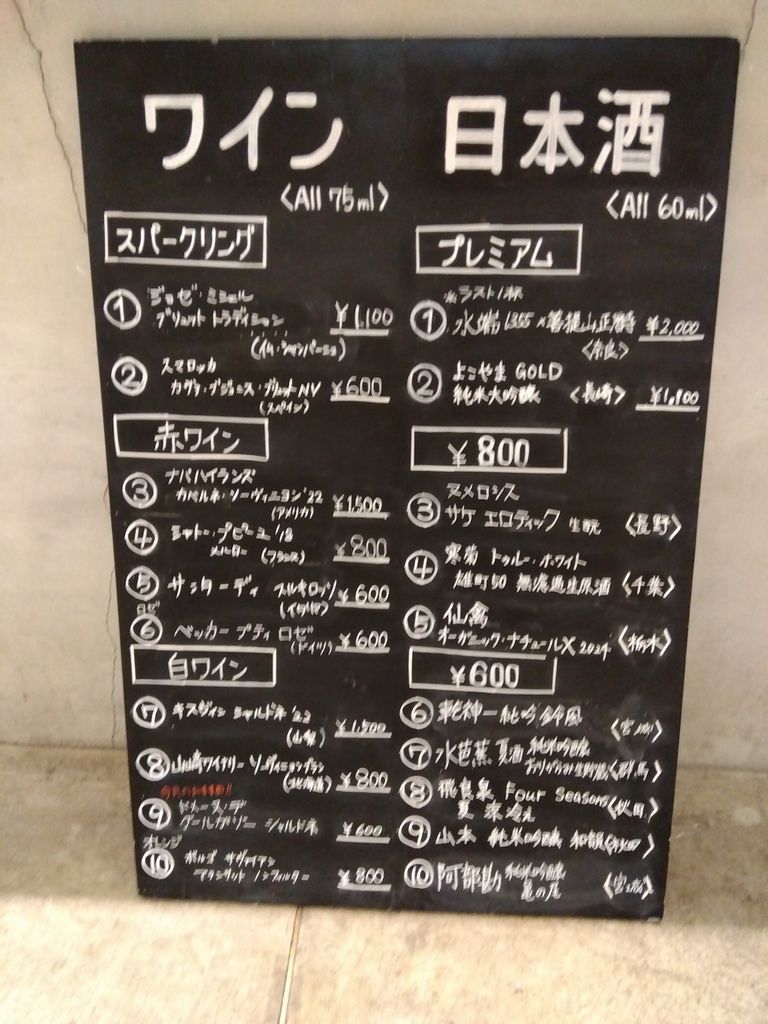 ワイン
〈All 75ml〉
スパークリング
① ジョゼ・ミシェル
ブリュット トラディション ¥1,100
② スマロッカ
カヴァ・ブリュット NV ¥600
(スペイン)
赤ワイン
③ ナパハイランズ
カベルネ・ソーヴィニヨン '22 ¥1,500
(アメリカ)
④ シャトー・プピーユ '18
メルロー (フランス) ¥800
⑤ サッターディ ¥600
ロゼ
⑥ ベッカー プティ ロゼ ¥600
(ドイツ)
白ワイン
⑦ キスヴィン シャルドネ '22
(山梨) ¥1,500
⑧ 山崎ワイナリー ソーヴィニヨンブラン
(北海道) ¥800
⑨ ドメーヌ・デ
シャルドネ ¥600
オレンジ
⑩ ノンフィルター ¥800
日本酒
〈All 60ml〉
プレミアム
※ラスト1杯
① 水端 1355 × 菩提山正暦寺 ¥2,000
〈奈良〉
② よこやま GOLD
純米大吟醸 〈長崎〉 ¥1,100
¥800
③ ヌメロシス
サケ エロティック 生酛 〈長野〉
④ 寒菊 トゥルー・ホワイト
雄町50 無濾過生原酒 〈千葉〉
⑤ 仙禽
オーガニック・ナチュール X 2024 〈栃木〉
¥600
⑥ 乾坤一 純吟 鈴風 〈宮城〉
⑦ 水芭蕉 夏酒 純米吟醸
おりがらみ生貯蔵 〈群馬〉
⑧ 飛良泉 Four Seasons
夏 〈秋田〉
⑨ 山本 純米吟醸 和韻 〈秋田〉
⑩ 阿部勘 純米吟醸
亀の尾 〈宮城〉